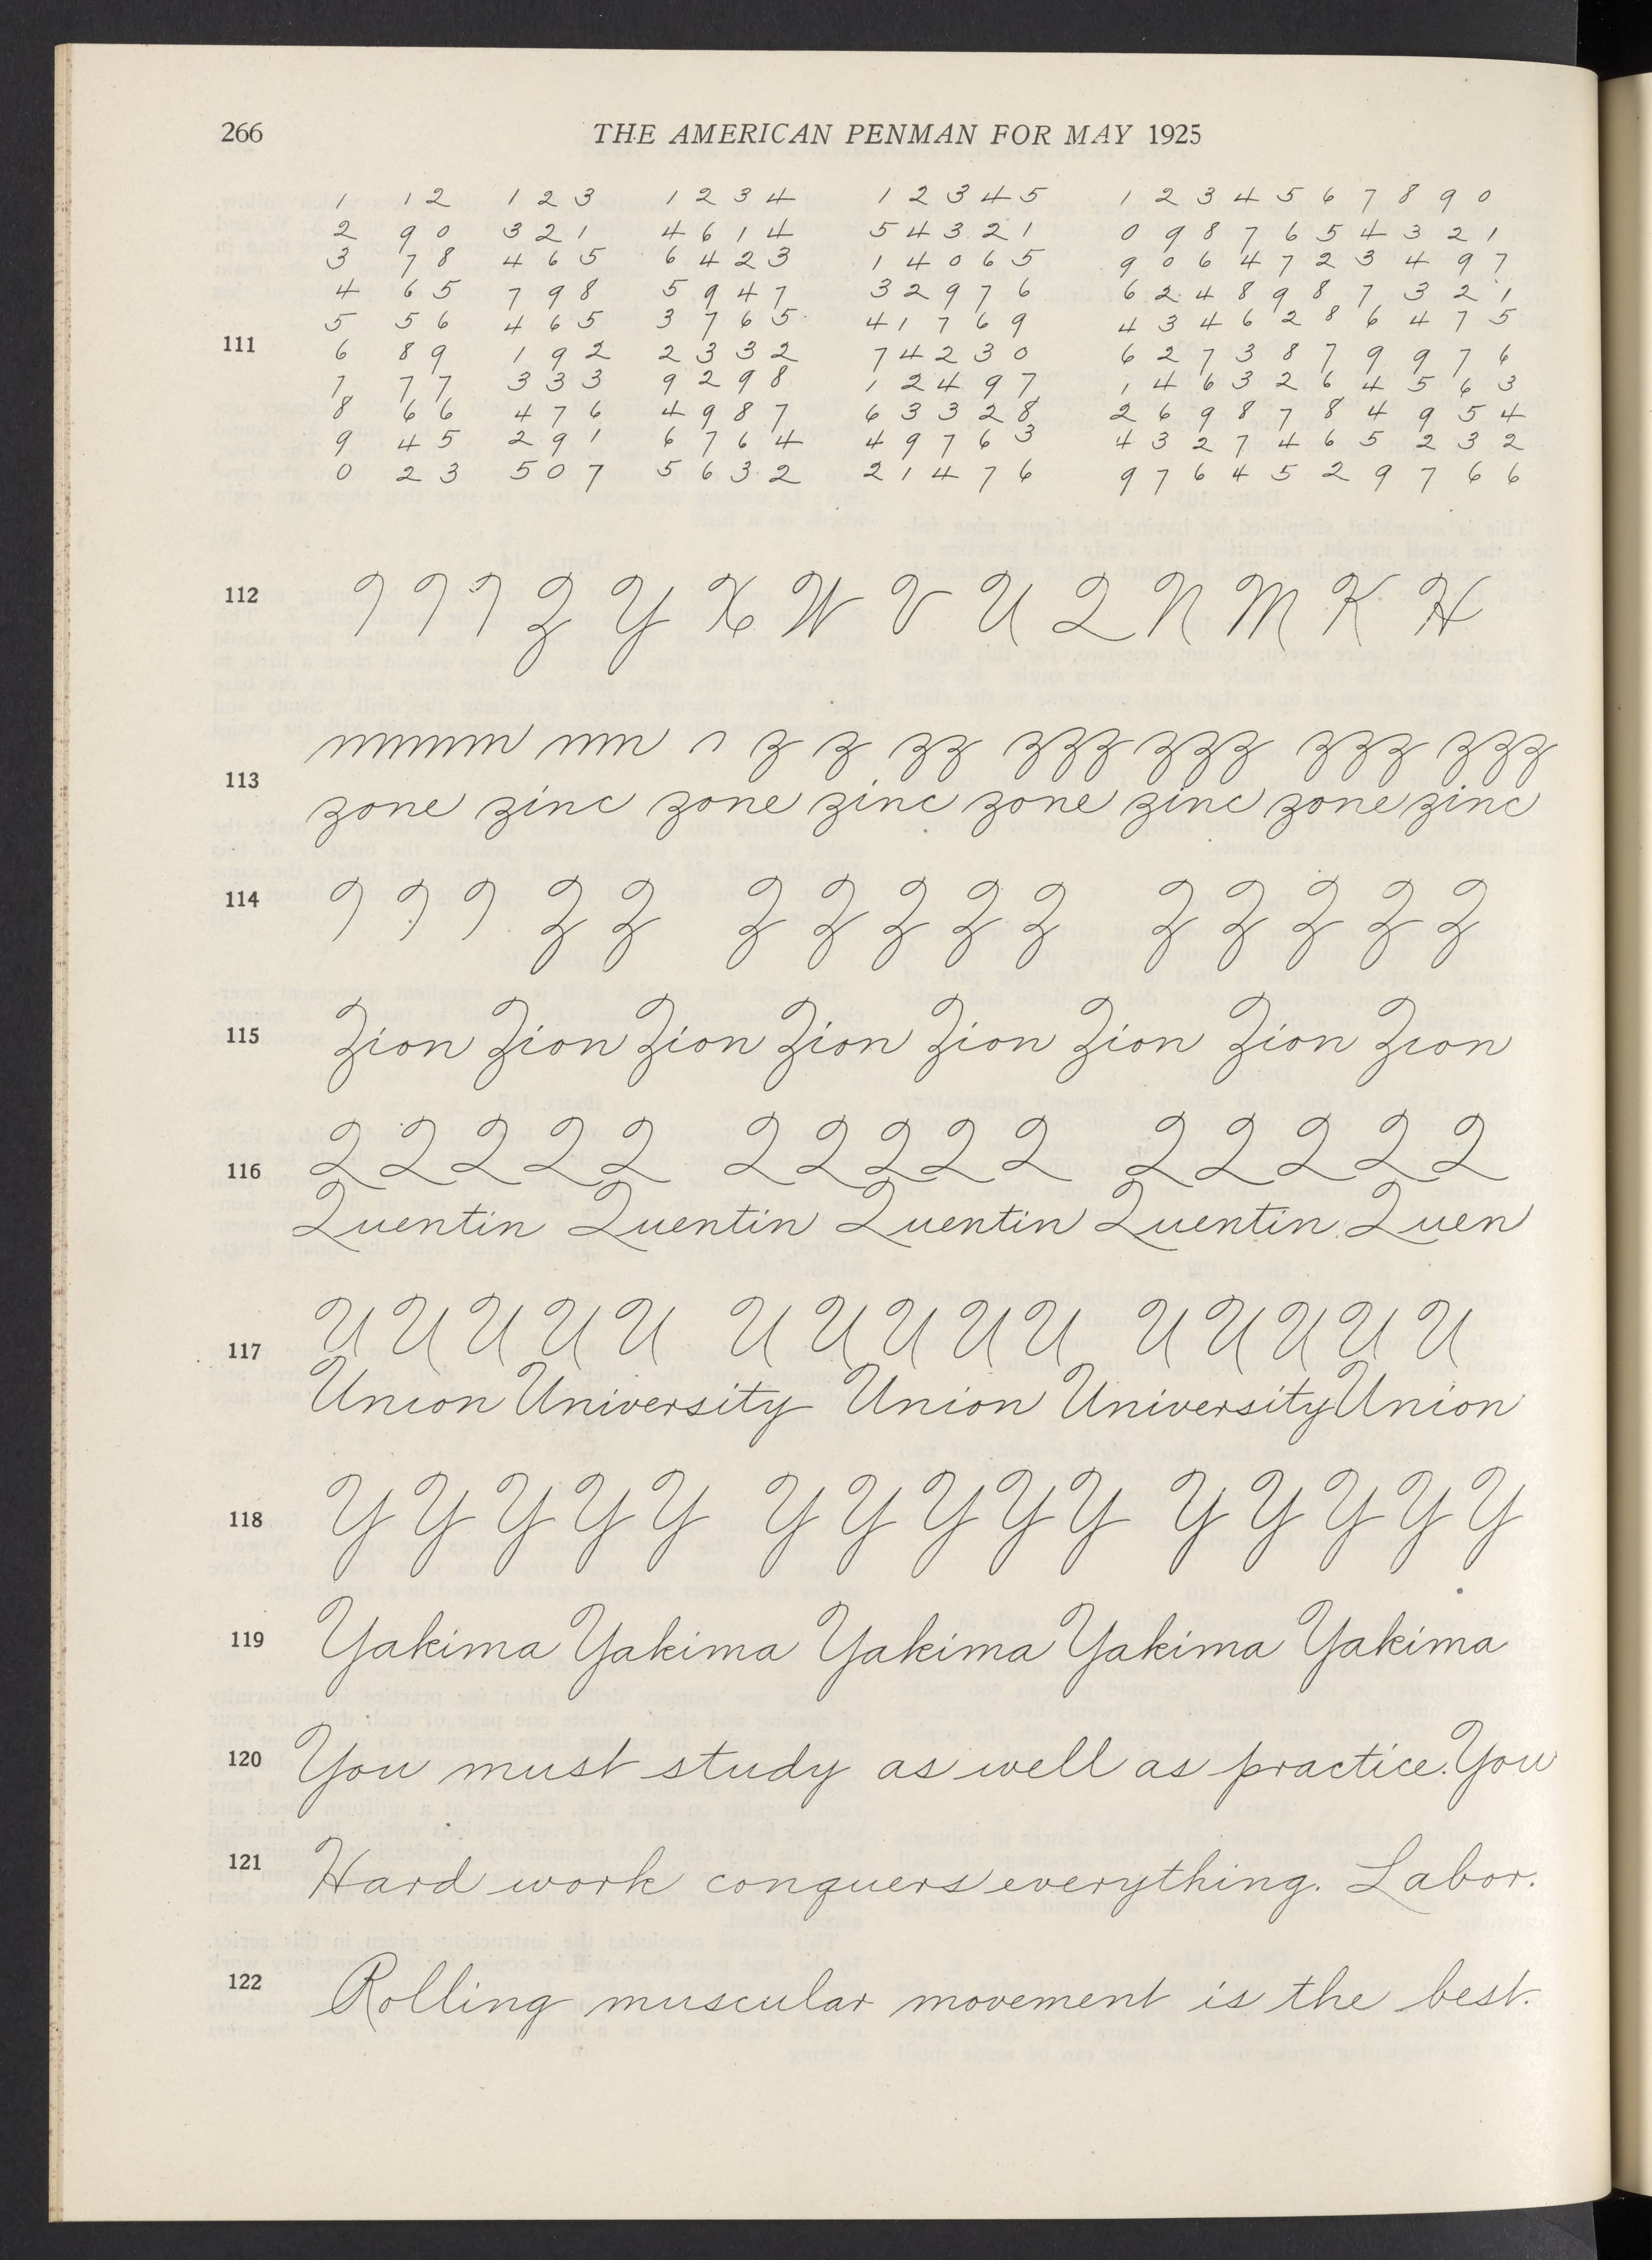 266 THE AMERICAN PENMAN FOR MAY 1925
1 1 2 1 2 3 1 2 3 4 1 2 3 4 5 1 2 3 4 5 6 7 8 9 0
2 9 0 3 2 1 4 6 1 4 5 4 3 2 1 0 9 8 7 6 5 4 3 2 1
3 7 8 4 6 5 6 4 2 3 1 4 0 6 5 9 0 6 4 7 2 3 4 9 7
4 6 5 7 9 8 5 9 4 7 3 2 9 7 6 6 2 4 8 9 8 7 3 2 1
5 5 6 4 6 5 3 7 6 5 4 1 7 6 9 4 3 4 6 2 8 6 4 7 5
111 6 8 9 1 9 2 2 3 3 2 7 4 2 3 0 6 2 7 3 8 7 9 9 7 6
7 7 7 3 3 3 9 2 9 8 1 2 4 9 7 1 4 6 3 2 6 4 5 6 3
8 6 6 4 7 6 4 9 8 7 6 3 3 2 8 2 6 9 8 7 8 4 9 5 4
9 4 5 2 9 1 6 7 6 4 4 9 7 6 3 4 3 2 7 4 6 5 2 3 2
0 2 3 5 0 7 5 6 3 2 2 1 4 7 6 9 7 6 4 5 2 9 7 6 6
112 Z Y X W V U Q N M K H
z z zz zzz zzz zzz zzz
113 zone zinc zone zinc zone zinc zone zinc
114 Z Z Z Z Z Z Z Z Z Z Z Z
115 Zion Zion Zion Zion Zion Zion Zion Zion
116 Q Q Q Q Q Q Q Q Q Q Q Q Q Q Q
Quentin Quentin Quentin Quentin Quen
117 U U U U U U U U U U U U U U U
Union University Union University Union
118 Y Y Y Y Y Y Y Y Y Y Y Y Y Y Y
119 Yakima Yakima Yakima Yakima Yakima
120 You must study as well as practice. You
121 Hard work conquers everything. Labor.
122 Rolling muscular movement is the best.